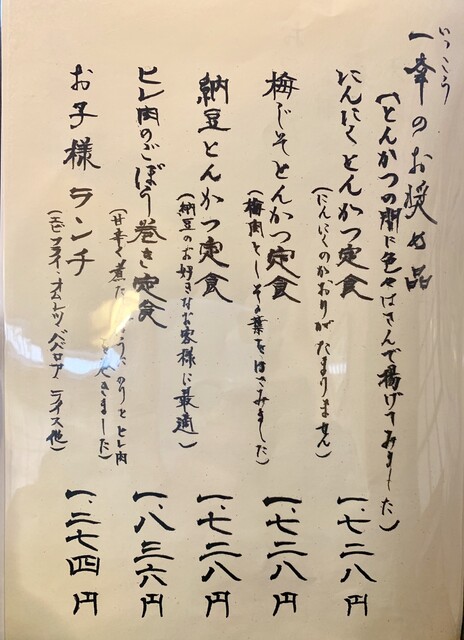 いっこう
一幸のお奨め品
(とんかつの間に色々はさんで揚げてみました)
にんにくとんかつ定食 一、七二八円
(にんにくのかおりがたまりません)
梅じそとんかつ定食 一、七二八円
(梅肉としその葉をはさみました)
納豆とんかつ定食 一、七二八円
(納豆のお好きなお客様に最適)
ヒレ肉のごぼう巻き定食 一、八三六円
(甘辛く煮た ぼう、のりとヒレ肉
巻きました)
お子様ランチ 一、二七四円
(エビフライ・オムレツ、ババロア ライス他)